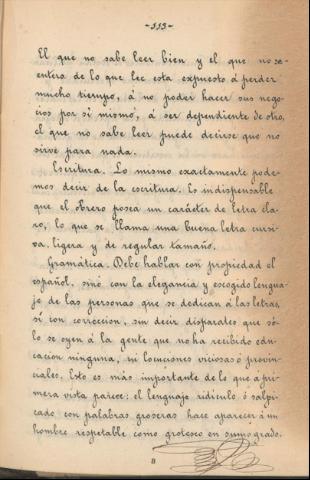 -113-
El que no sabe leer bien y el que no se en-
entera de lo que lee esta expuesto á perder
mucho tiempo, á no poder hacer sus nego-
cios por si mismo, á ser dependiente de otro,
el que no sabe leer puede decirse que no
sirve para nada.
Escritura. Lo mismo exactamente pode-
mos decir de la escritura. Es indispensable
que el obrero posea un carácter de letra cla-
ro, lo que se llama una buena letra cursi-
va, ligera y de regular tamaño.
Gramática. Debe hablar con propiedad el
español, sinó con la elegancia y escogido lengua-
je de las personas que se dedican á las letras,
si con correccion, sin decir disparates que só-
lo se oyen á la gente que no ha recibido edu-
cacion ninguna, ni locuciones viciosas ó provin-
ciales. Esto es más importante de lo que á pri-
mera vista parece: el lenguaje ridículo ó salpi-
cado con palabras groseras hace aparecer á un
hombre respetable como grotesco en sumo grado.
8